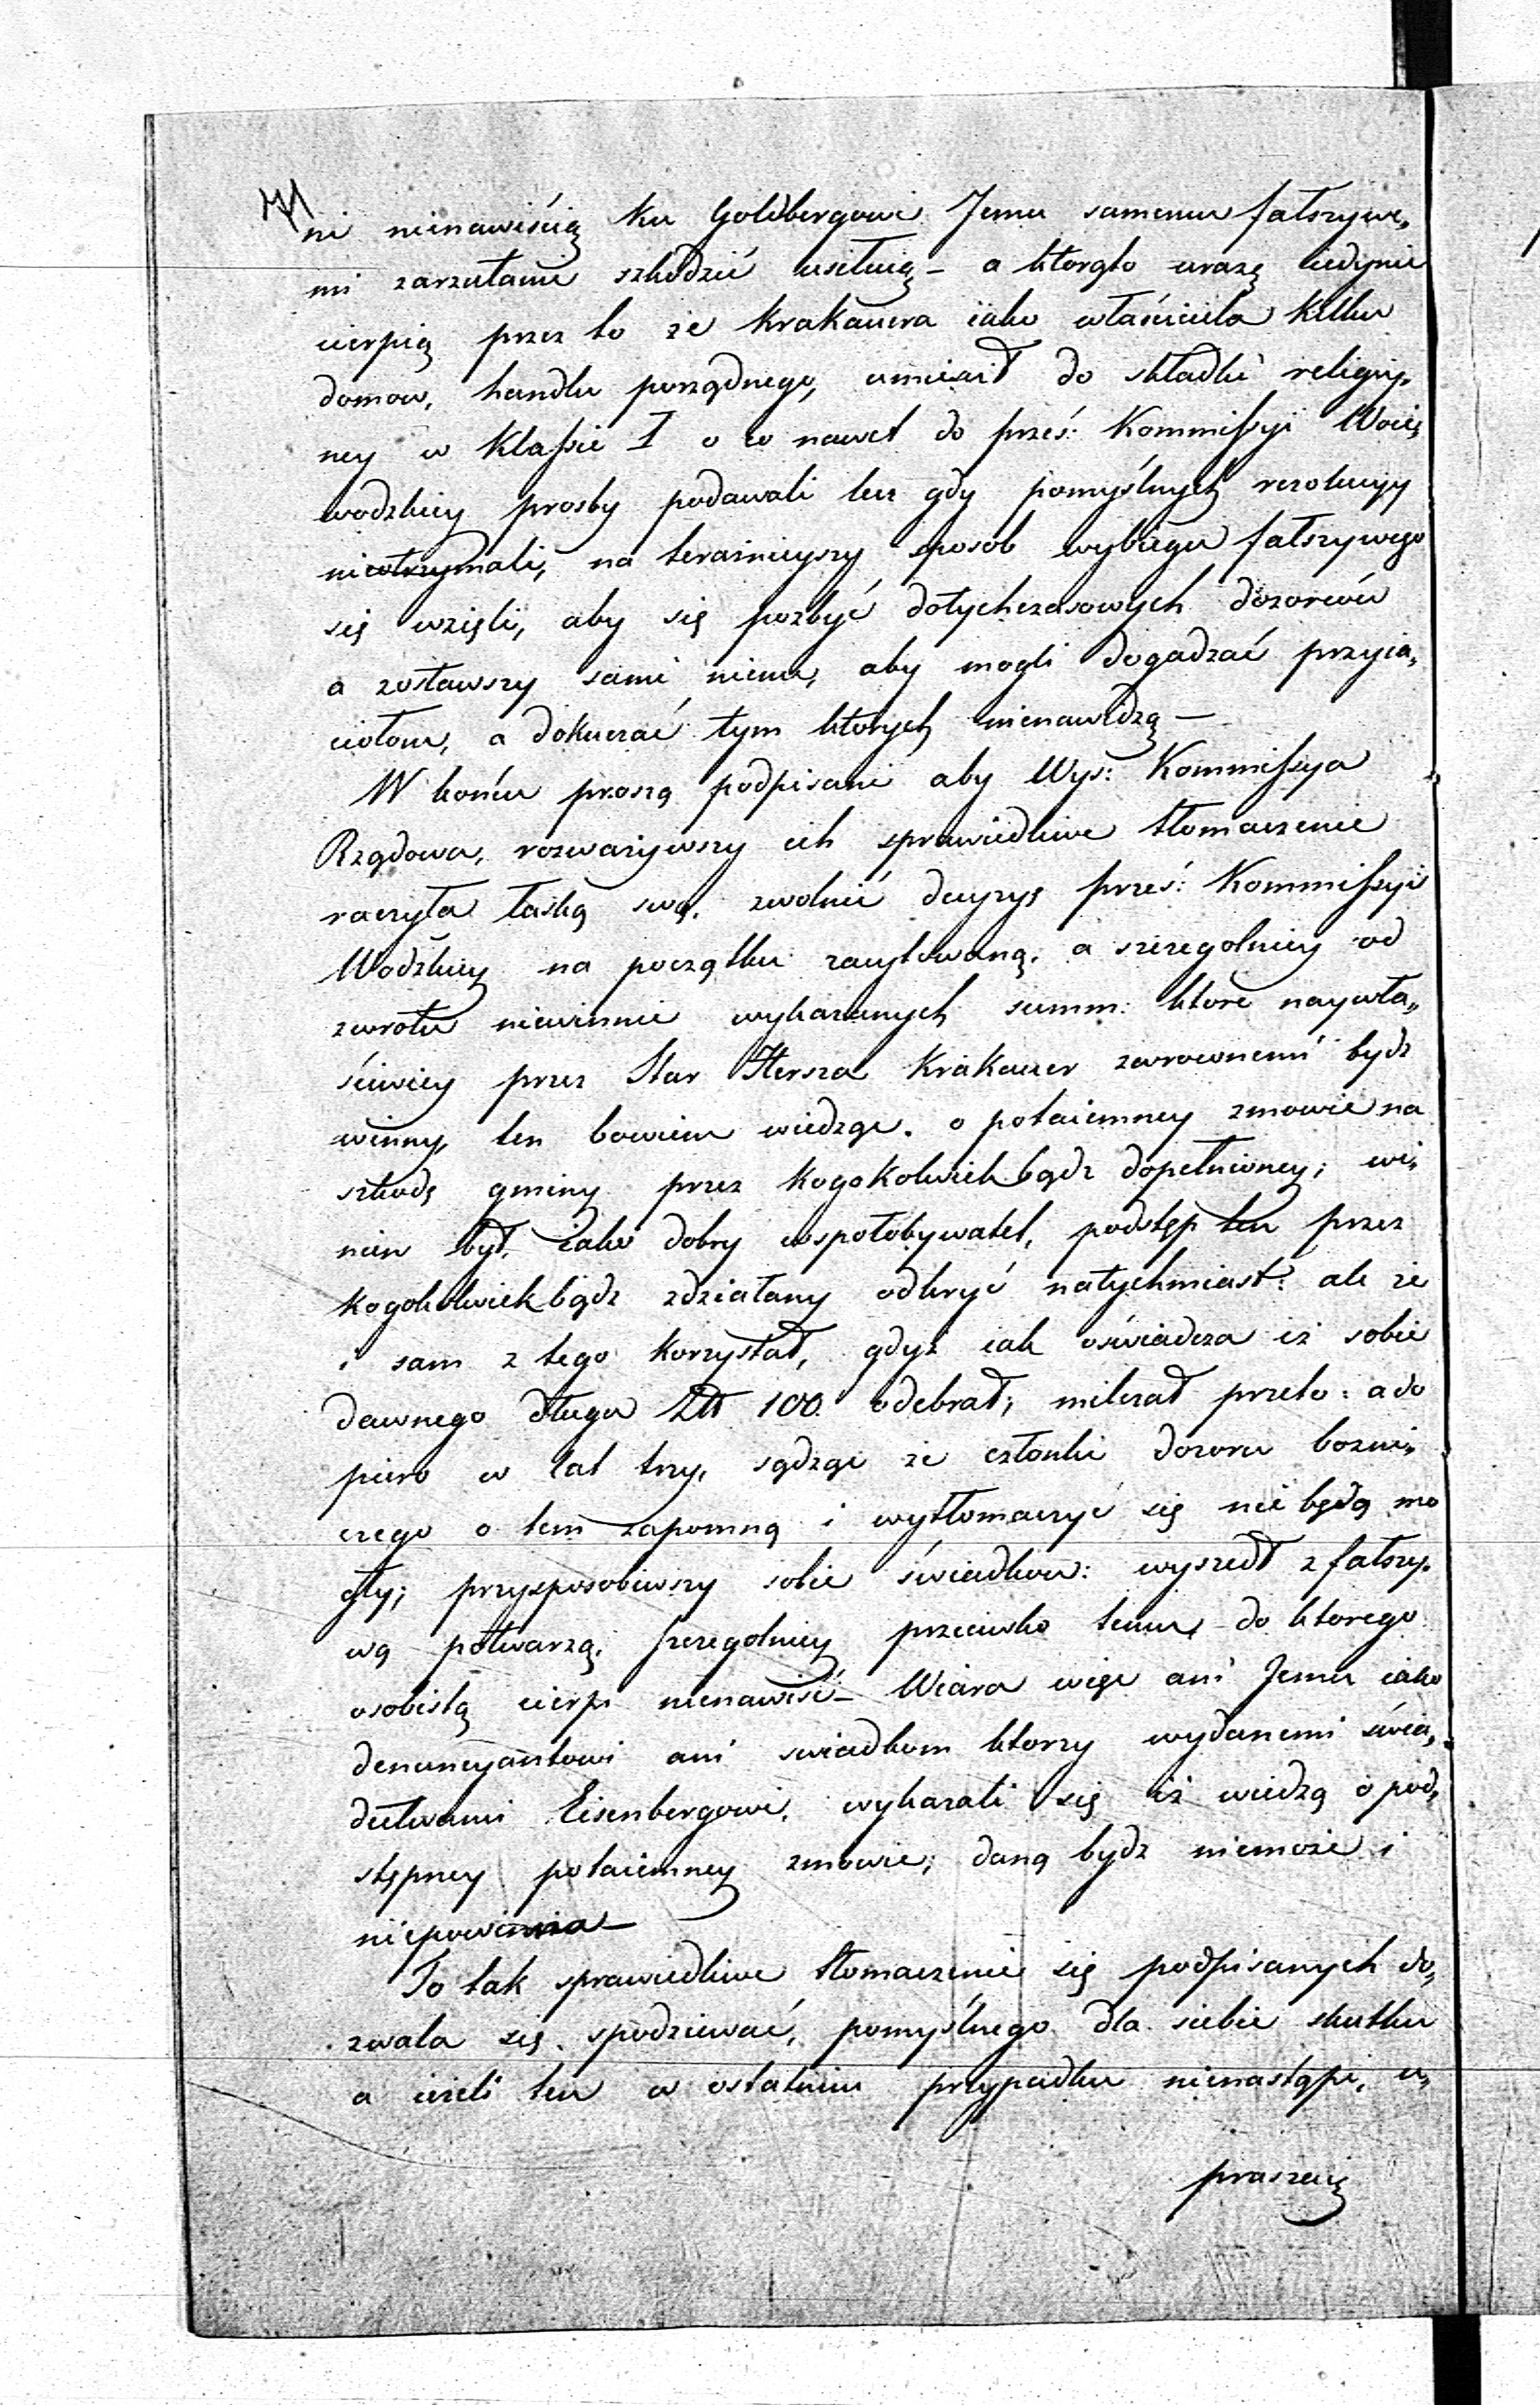 71
ni nienawiścią ku Goldbergowi Jemu samemu fałszywe„
mi zarzutami szkodzić usiłuią – a którąto urazę iedynie
cierpią przez to że Krakauera iako właściciela kilku
domow, handlu porządnego, umieścił do składki religiy„
ney w Klassie I o co nawet do prześ: Kommissyi Woie„
wodzkiey prosby podawali lecz gdy pomyślnych rezolucyy
nieotrzymali, na teraźnieyszy sposob wybiegu fałszywego
się wzięli, aby się pozbyć dotychczasowych dozorców
a zostawszy sami niemi, aby mogli dogadzać przyia„
ciołom, a dokuczać tym ktorych nienawidzą –
W końcu proszą podpisani aby Wys: Kommissya
Rządowa, rozważywszy ich sprawiedliwe tłomaczenie
raczyła łaską swą, zwolnić decyzyę prześ: Kommissyi
Wodzkiey na początku zacytowaną, a szczegolniey od
zwrotu niewinnie wykazanych summ: ktore naywła„
ściwiey przez Star Hersza Krakauer zwrownemi bydź
winny, ten bowiem wiedząc o potaiemney zmowie na
szkodę gminy przez kogokolwiekbądz dopełnioney; wi„
nien był, iako dobry wspołobywatel, podstęp ten przez
kogokolwiekbądz zdziałany odkryć natychmiast: ale że
i sam z tego korzystał, gdyż iak oświadcza iż sobie
dawnego długu Złł 100 odebrał; milczał przeto: a do
piero w lat trzy, sądząc że członki dozoru bozni„
czego o tem zapomną i wytłomaczyć się nie będą mo
gły; przysposobiwszy sobie świadkow: wyszedł z fałszy„
wą potwarzą, szczegolniey przeciwko temu, do ktorego
osobistą cierpi nienawiść – Wiara więc ani Jemu iako
denuncyantowi ani swiadkom ktorzy wydanemi świa„
dectwami Eisenbergowi, wykazali się iż wiedzą o pod„
stępney potaiemney zmowie; daną bydz niemoże i
niepowinna –
To tak sprawiedliwe tłomaczenie się podpisanych do„
zwala się spodziewać, pomyślnego dla siebie skutku
a ieżeli ten w ostatnim przypadku nienastąpi, u„
praszaią